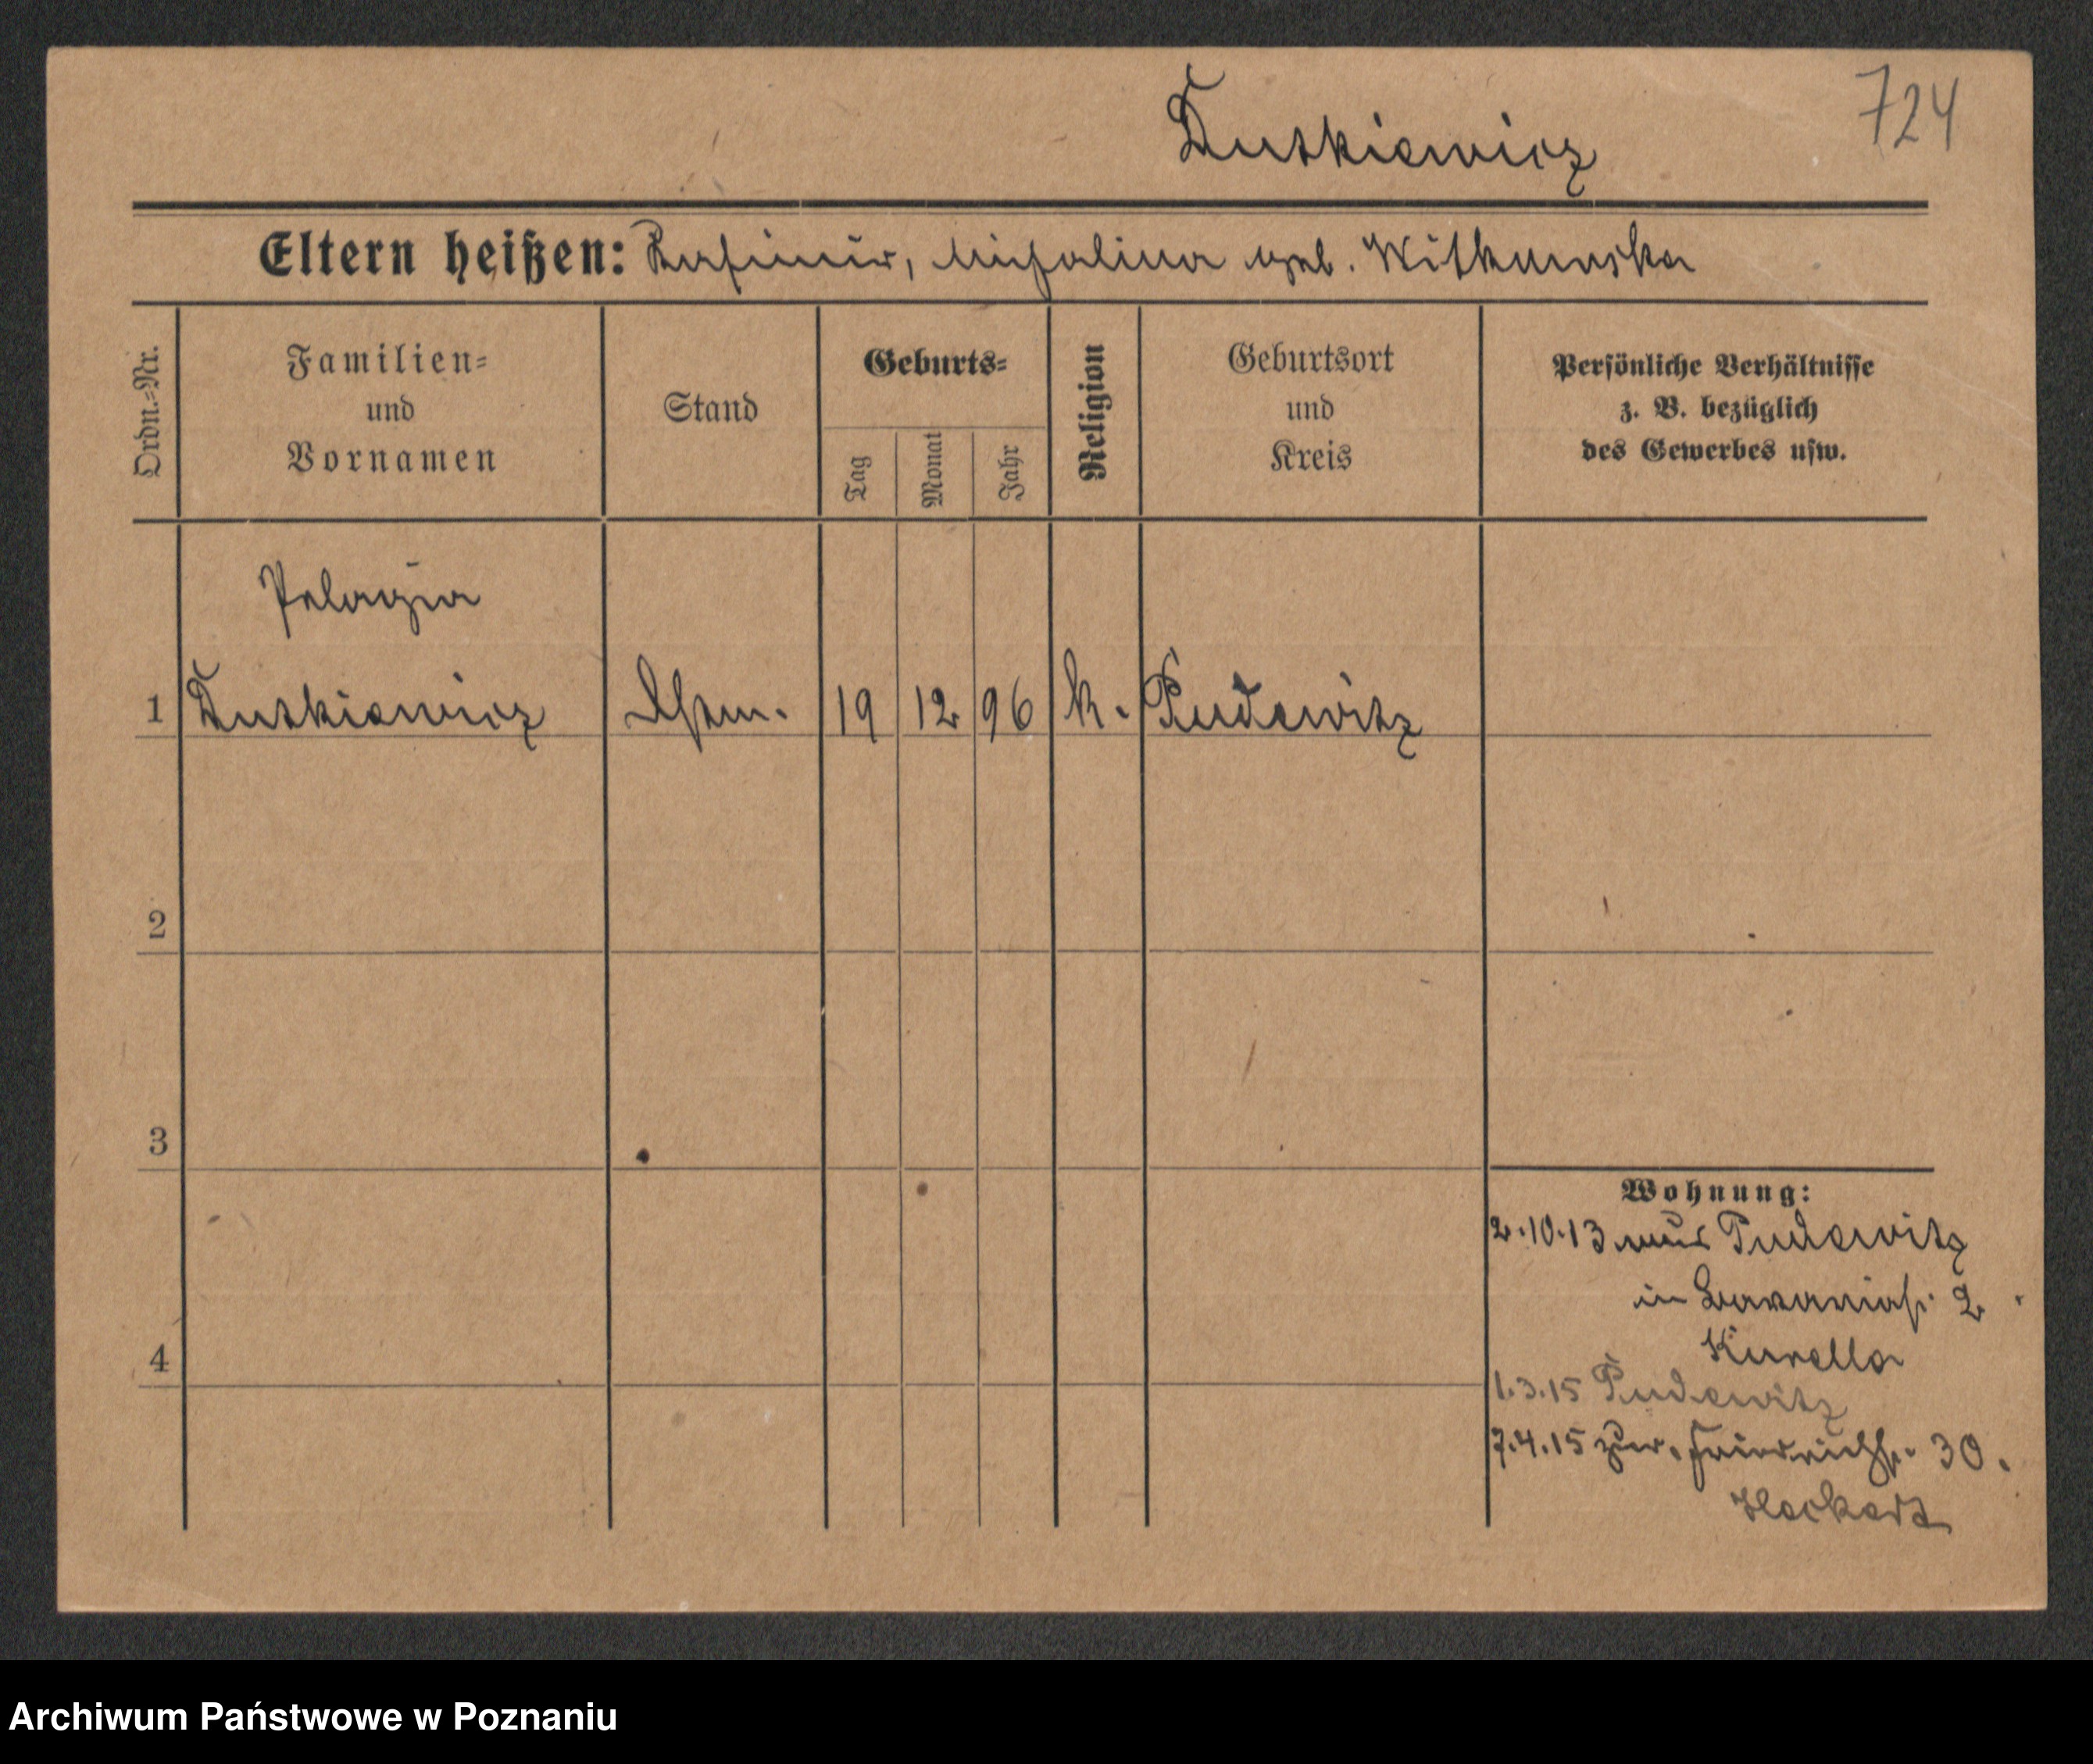 724
Dutkiewicz
Eltern heißen: Kasimir, Michalina geb. Witkowska
Ordn.-Nr.
Familien-
und
Vornamen
Stand
Geburts-
Tag
Monat
Jahr
Religion
Geburtsort
und
Kreis
Persönliche Verhältnisse
z. B. bezüglich
des Gewerbes usw.
Pelagia
1 Dutkiewicz 19 12 96 k. Pudewitz
2
3
4
Wohnung:
2.10.13 aus Pudewitz
in 2
Kurella
1.3.15 Pudewitz
7.4.15 zur. Friedrichstr. 30.
Archiwum Państwowe w Poznaniu